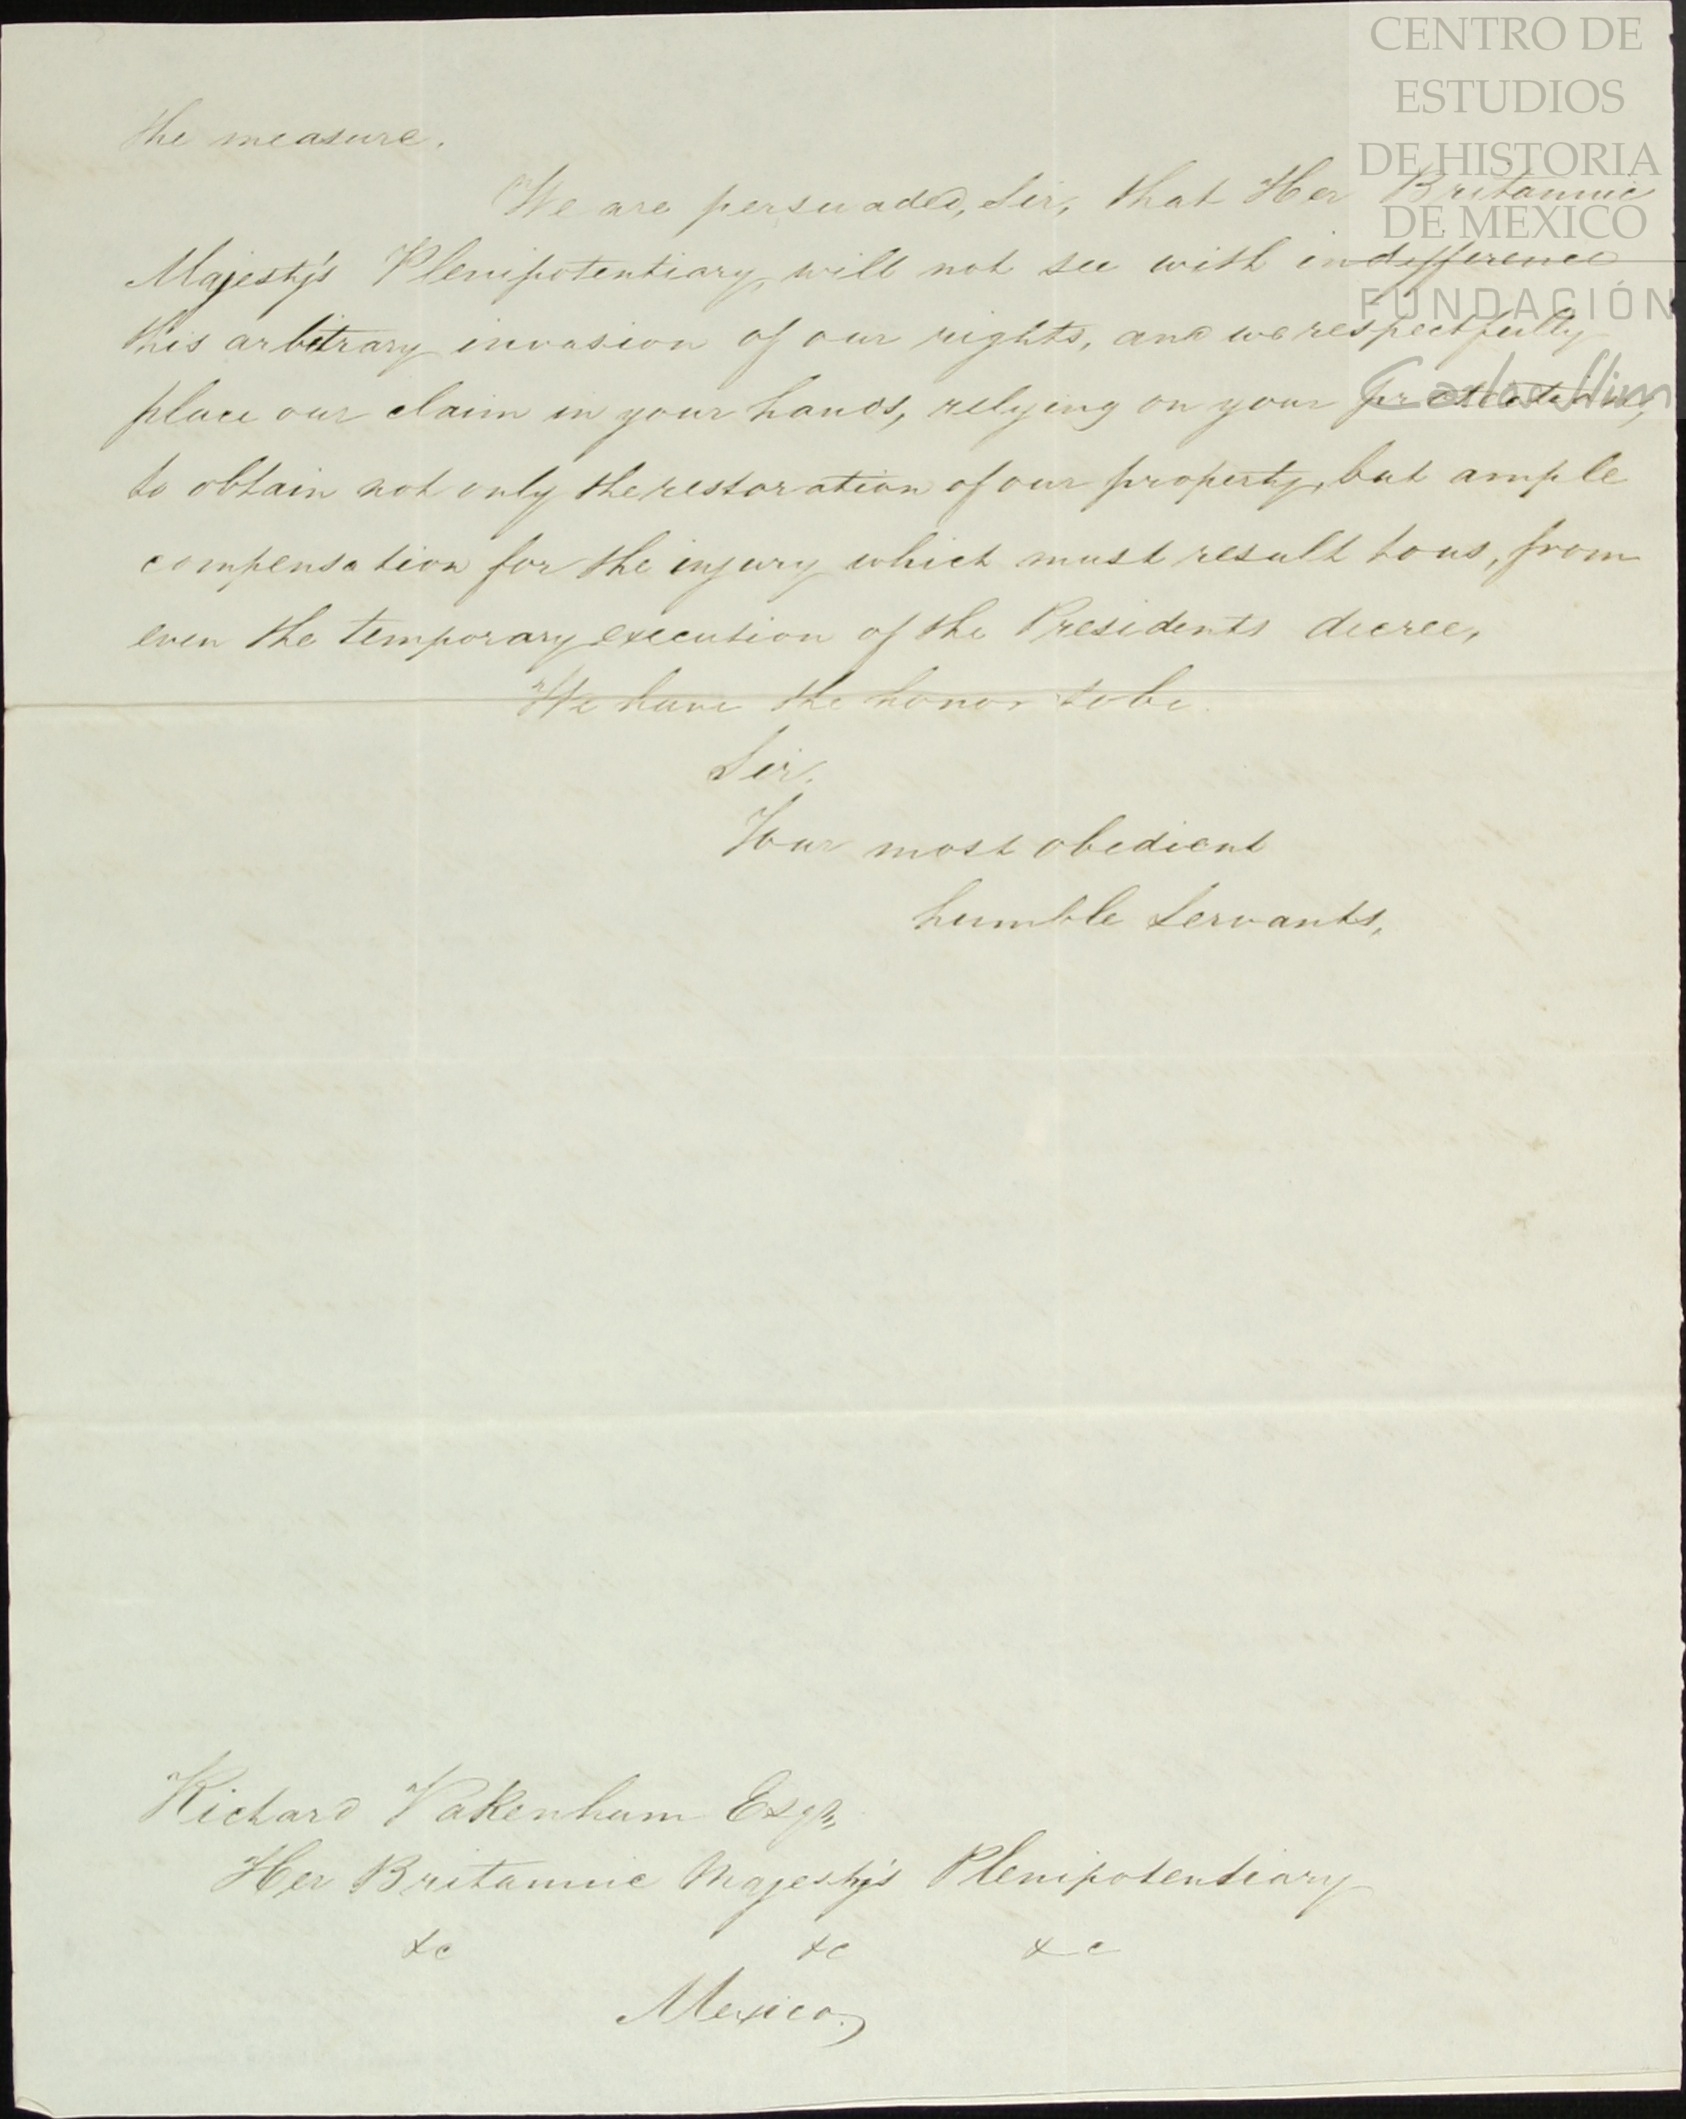 CENTRO DE
ESTUDIOS
DE HISTORIA
DE MEXICO
FUNDACIÓN
Carlos Slim
the measure.
We are persuaded, Sir, that Her Britannic
Majesty's Plenipotentiary, will not see with indifference
this arbitrary invasion of our rights, and we respectfully
place our claim in your hands, relying on your protection,
to obtain not only the restoration of our property, but ample
compensation for the injury which must result to us, from
even the temporary execution of the Presidents decree,
We have the honor to be
Sir.
Your most obedient
humble Servants,
Richard Pakenham Esqr.,
Her Britannic Majesty's Plenipotentiary
&c &c &c
Mexico.